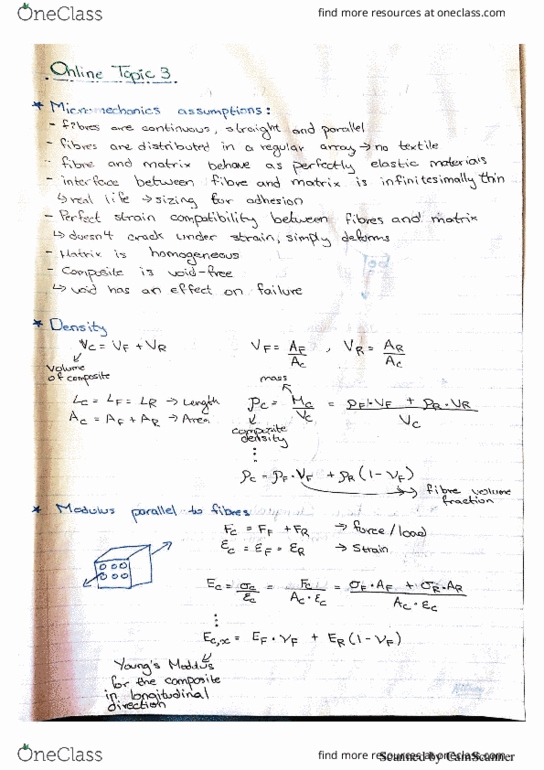 OneClass
find more resources at oneclass.com
Online Topic 3
* Micromechanics assumptions:
- fibres are continuous, straight and parallel
- fibres are distributed in a regular array → no textile
- fibre and matrix behave as perfectly elastic materials
- interface between fibre and matrix is infinitesimally thin
↳ real life → sizing for adhesion
- Perfect strain compatibility between fibres and matrix
↳ doesn't crack under strain, simply deforms
- Matrix is homogeneous
- Composite is void-free
↳ void has an effect on failure
* Density
Vc = VF + VR
VF = AF/Ac , VR = AR/Ac
Volume of composite
mass
Lc = LF = LR → Length
Ac = AF + AR → Area
ρc = Mc/Vc = (ρF·VF + ρR·VR)/Vc
composite density
⋮
ρc = ρF·VF + ρR(1-VF)
→ fibre volume fraction
* Modulus parallel to fibres
Fc = FF + FR → force/load
εc = εF = εR → Strain
Ec = σc/εc = Fc/(Ac·εc) = (σF·AF + σR·AR)/(Ac·εc)
⋮
Ec,x = EF·VF + ER(1-VF)
Young's Moddus
for the composite
in longitudinal
direction
OneClass
find more resources at oneclass.com
Scanned by CamScanner